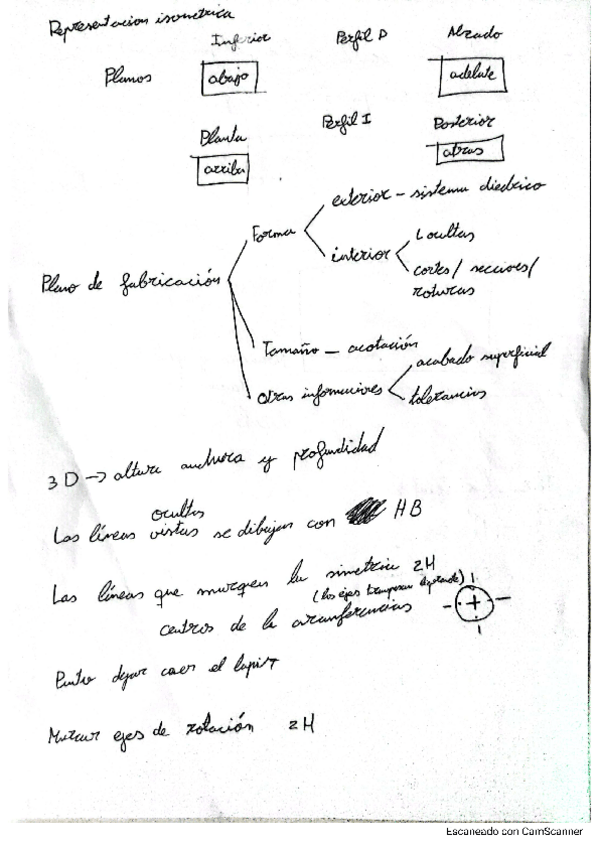 Representacion isometrica
Inferior Perfil D Alzado
Planos abajo adelate
Planta Perfil I Posterior
arriba atras
exterior - sistema diedrico
Forma
interior
ocultas
cortes / secciones /
roturas
Plano de fabricación
Tamaño - acotación
acabado superficial
otras informaciones
tolerancias
3D -> altura anchura y profundidad
ocultas
Las líneas vistas se dibujan con HB
Las líneas que marquen la simetria 2H
(los ejes
centros de la circunferencias
Punto dejar caer el lapiz
Marcar ejes de rotación 2H
Escaneado con CamScanner